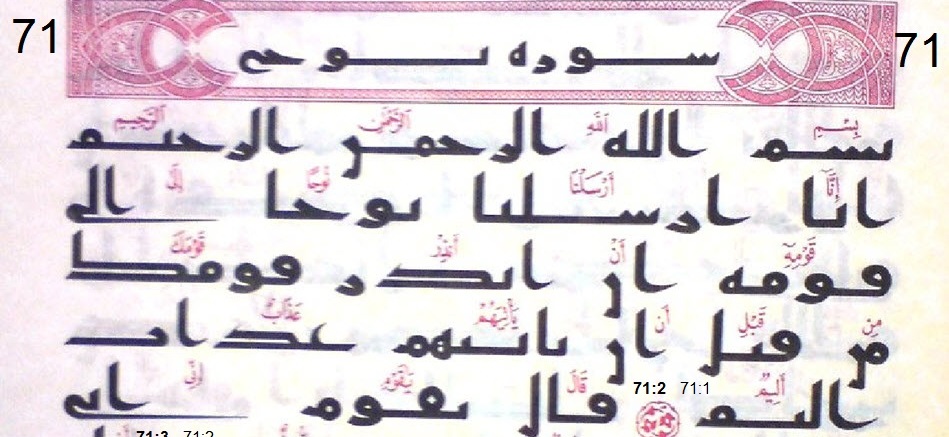 71 سوره نوح 71
بِسْمِ اللَّهِ الرَّحْمَٰنِ الرَّحِيمِ
بسم الله الرحمن الرحيم
إِنَّآ أَرْسَلْنَا نُوحًا إِلَىٰ
انا ارسلنا نوحا الى
قَوْمِهِۦٓ أَنْ أَنذِرْ قَوْمَكَ
قومه ان انذر قومك
مِن قَبْلِ أَن يَأْتِيَهُمْ عَذَابٌ
من قبل ان ياتيهم عذاب
أَلِيمٌ 71:1 71:2 قَالَ يَٰقَوْمِ إِنِّى
اليم قال يقوم انى
71:2 71:3